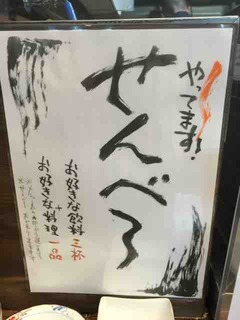 やってます!
せんべろ
お好きな飲料 三杯
+
お好きな料理 一品